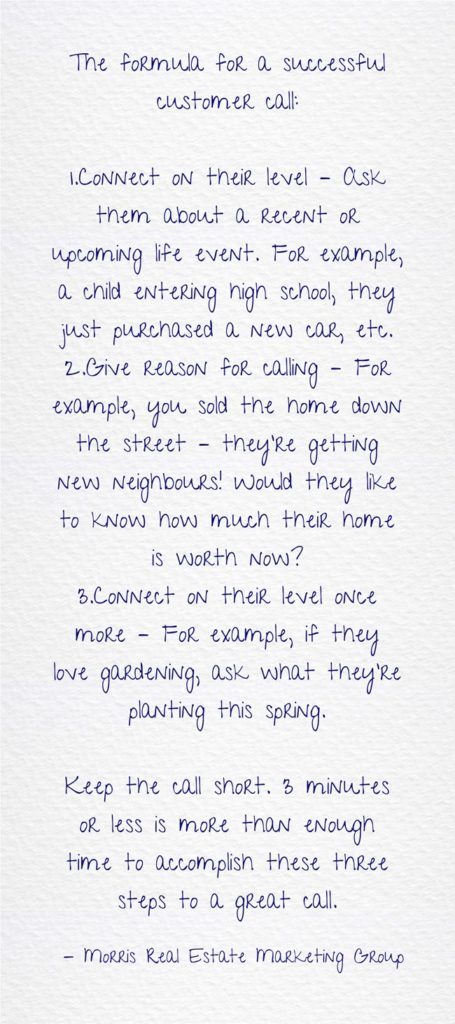 The formula for a successful
customer call:
1.Connect on their level - Ask
them about a recent or
upcoming life event. For example,
a child entering high school, they
just purchased a new car, etc.
2.Give reason for calling - For
example, you sold the home down
the street - they're getting
new neighbours! Would they like
to know how much their home
is worth now?
3.Connect on their level once
more - For example, if they
love gardening, ask what they're
planting this spring.
Keep the call short. 3 minutes
or less is more than enough
time to accomplish these three
steps to a great call.
- Morris Real Estate Marketing Group